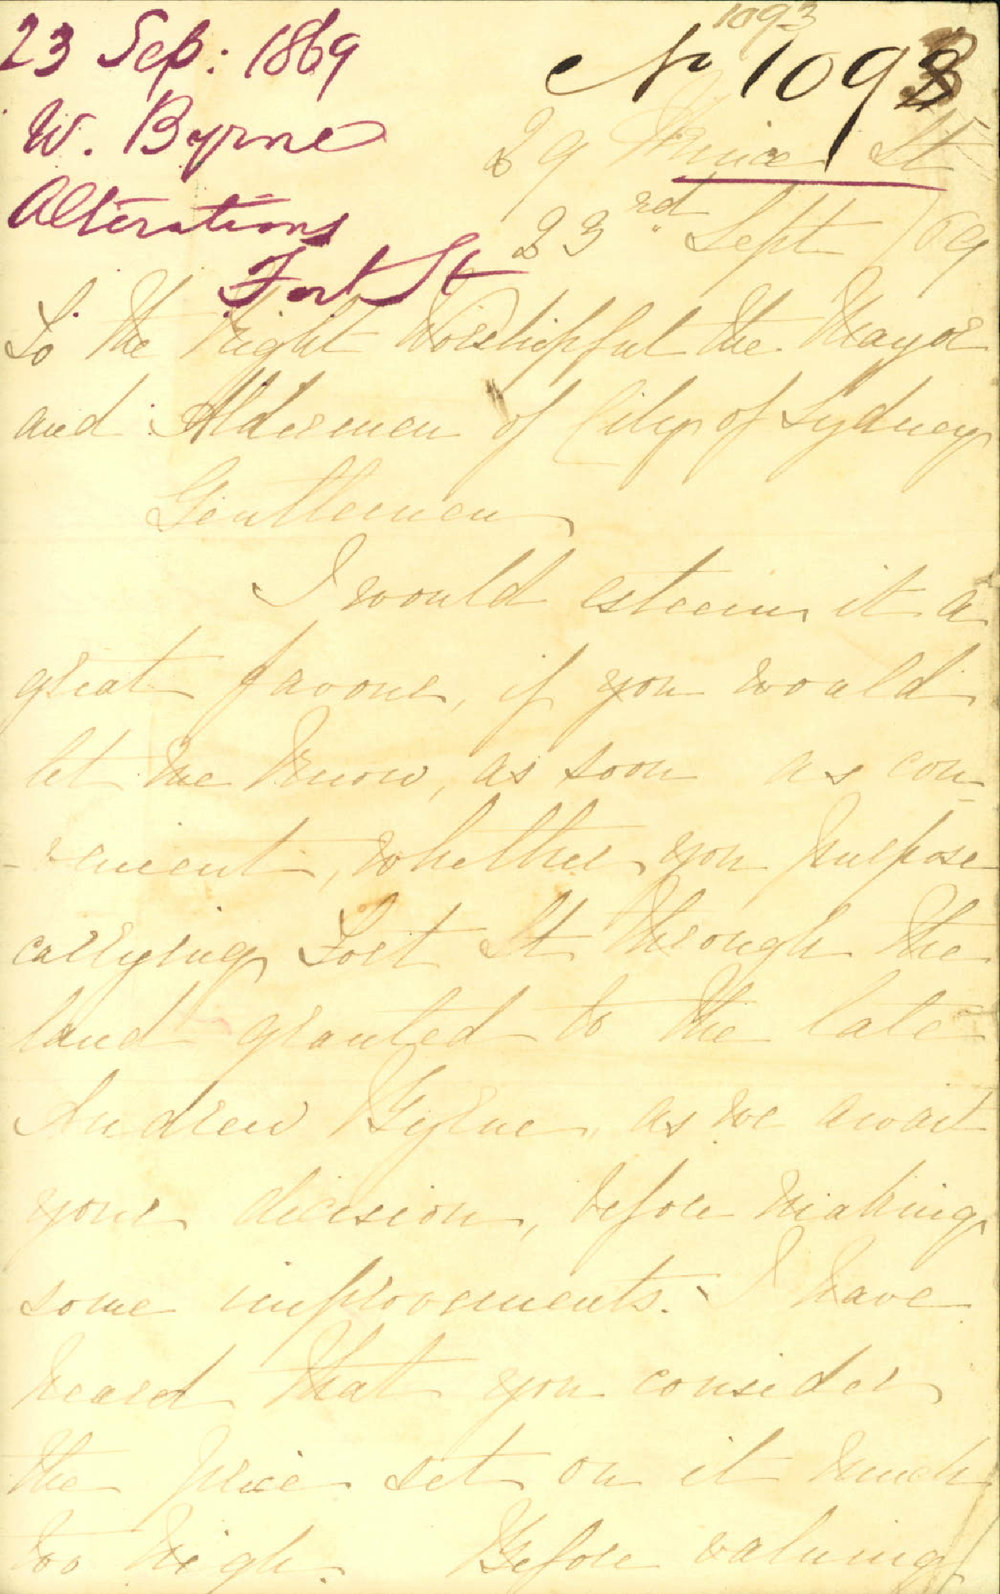 1093
23 Sep: 1869
No 1093
W. Byrne
29 Prince St
Alterations
23rd Sept /69
Fort St
To the Right Worshipful the Mayor
and Aldermen of City of Sydney
Gentlemen
I would esteem it a
great favour, if you would
let me know, as soon as con
-venient, whether you purpose
carrying Fort St through the
land granted to the late
Andrew Byrne, as we await
your decision, before making
some improvements. I have
heard that you consider
the price set on it much
too high. Before valuing